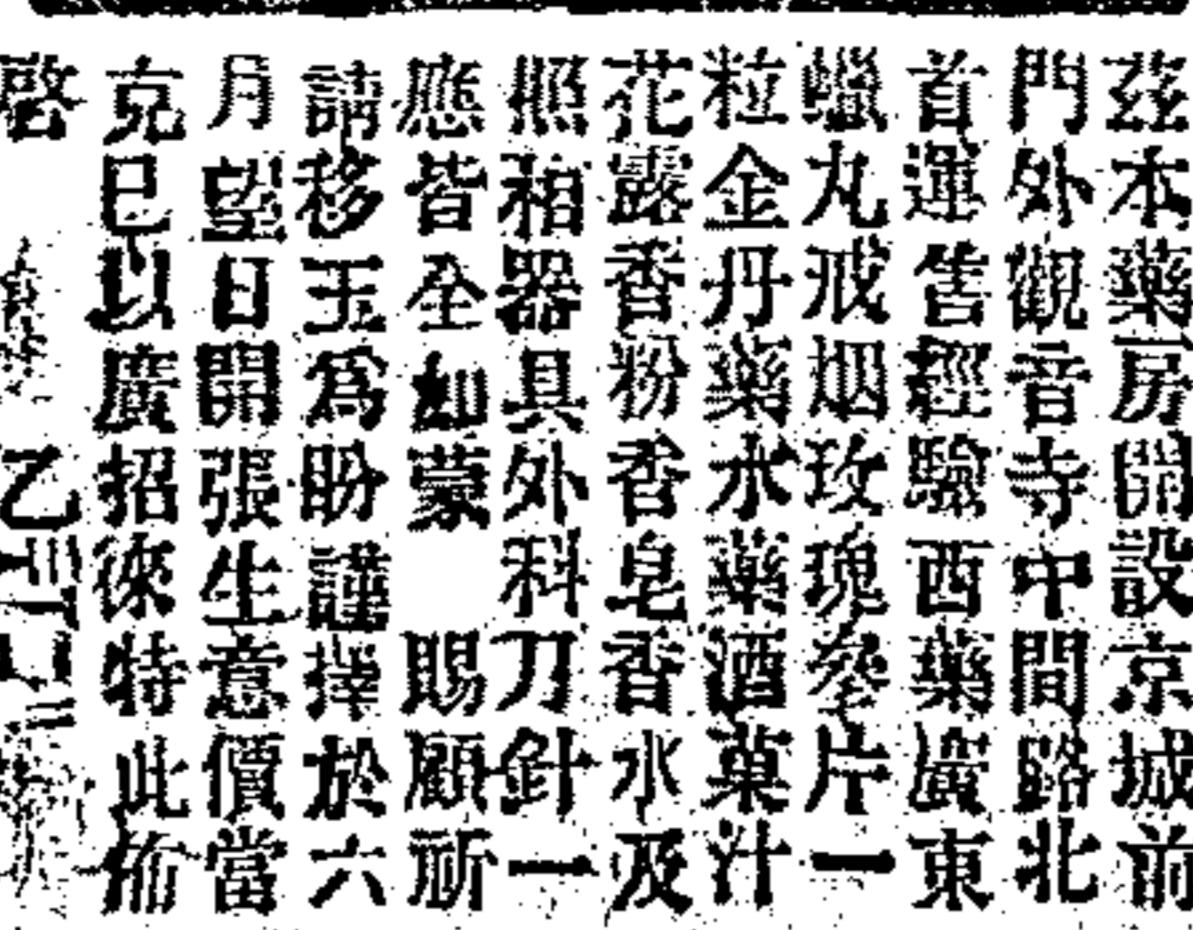 茲本藥房開設京城前
門外觀音寺中間路北
首運售經驗西藥廣東
蠟丸戒烟玫瑰參片一
粒金丹藥水藥酒菓汁
花露香粉香皂香水及
照相器具外科刀針一
應皆全如蒙　賜顧祈
請移玉爲盼謹擇於六
月望日開張生意價當
克已以廣招徠特此佈
啓